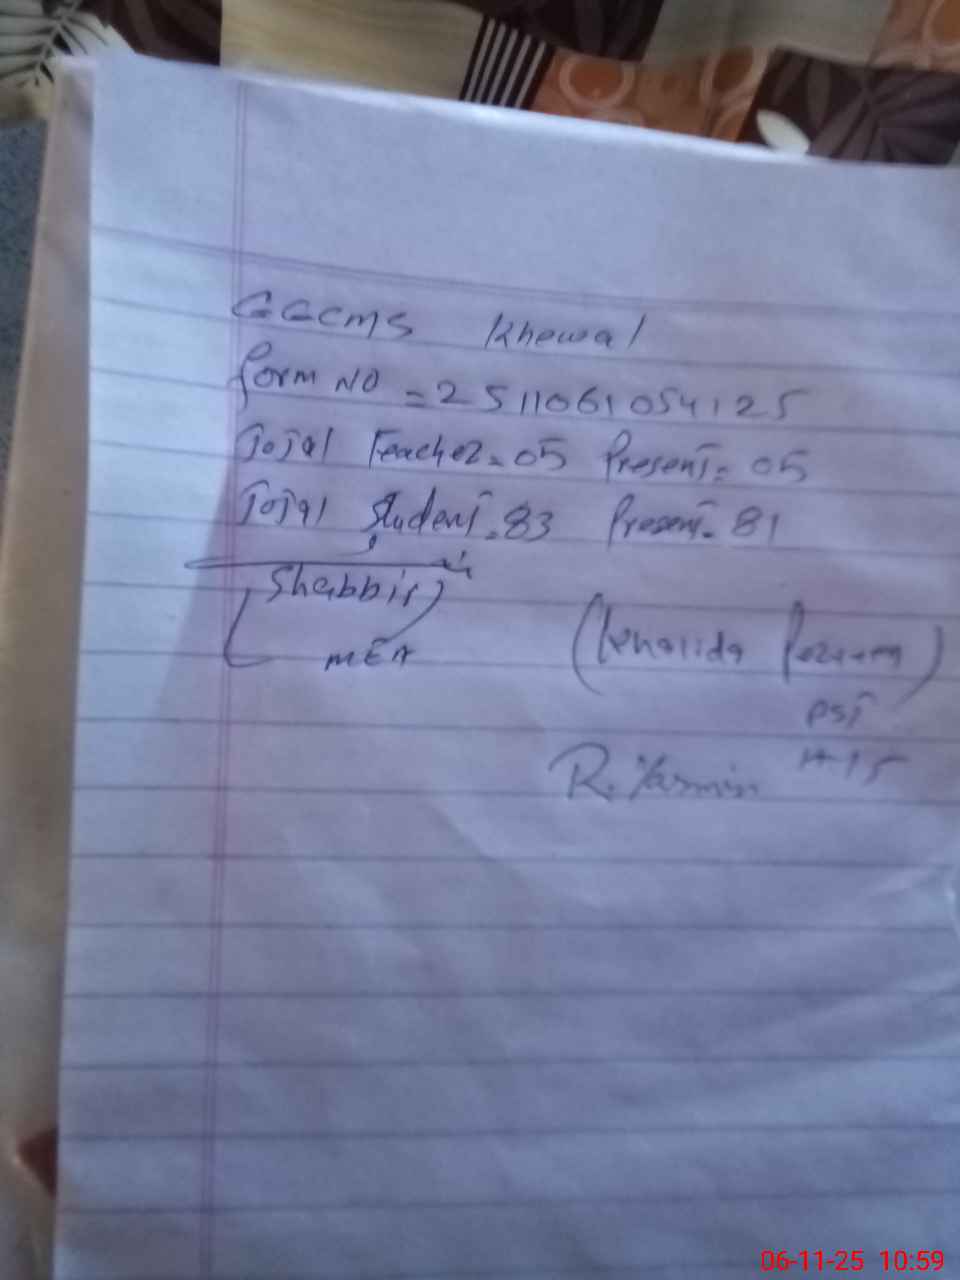 GGCMS Khewal
Form NO = 2511061054125
Total Teacher = 05 Present = 05
Total Student = 83 Present = 81
Shabbir
MEA
(Khalida Perveen)
PST
R. Yasmin
06-11-25 10:59